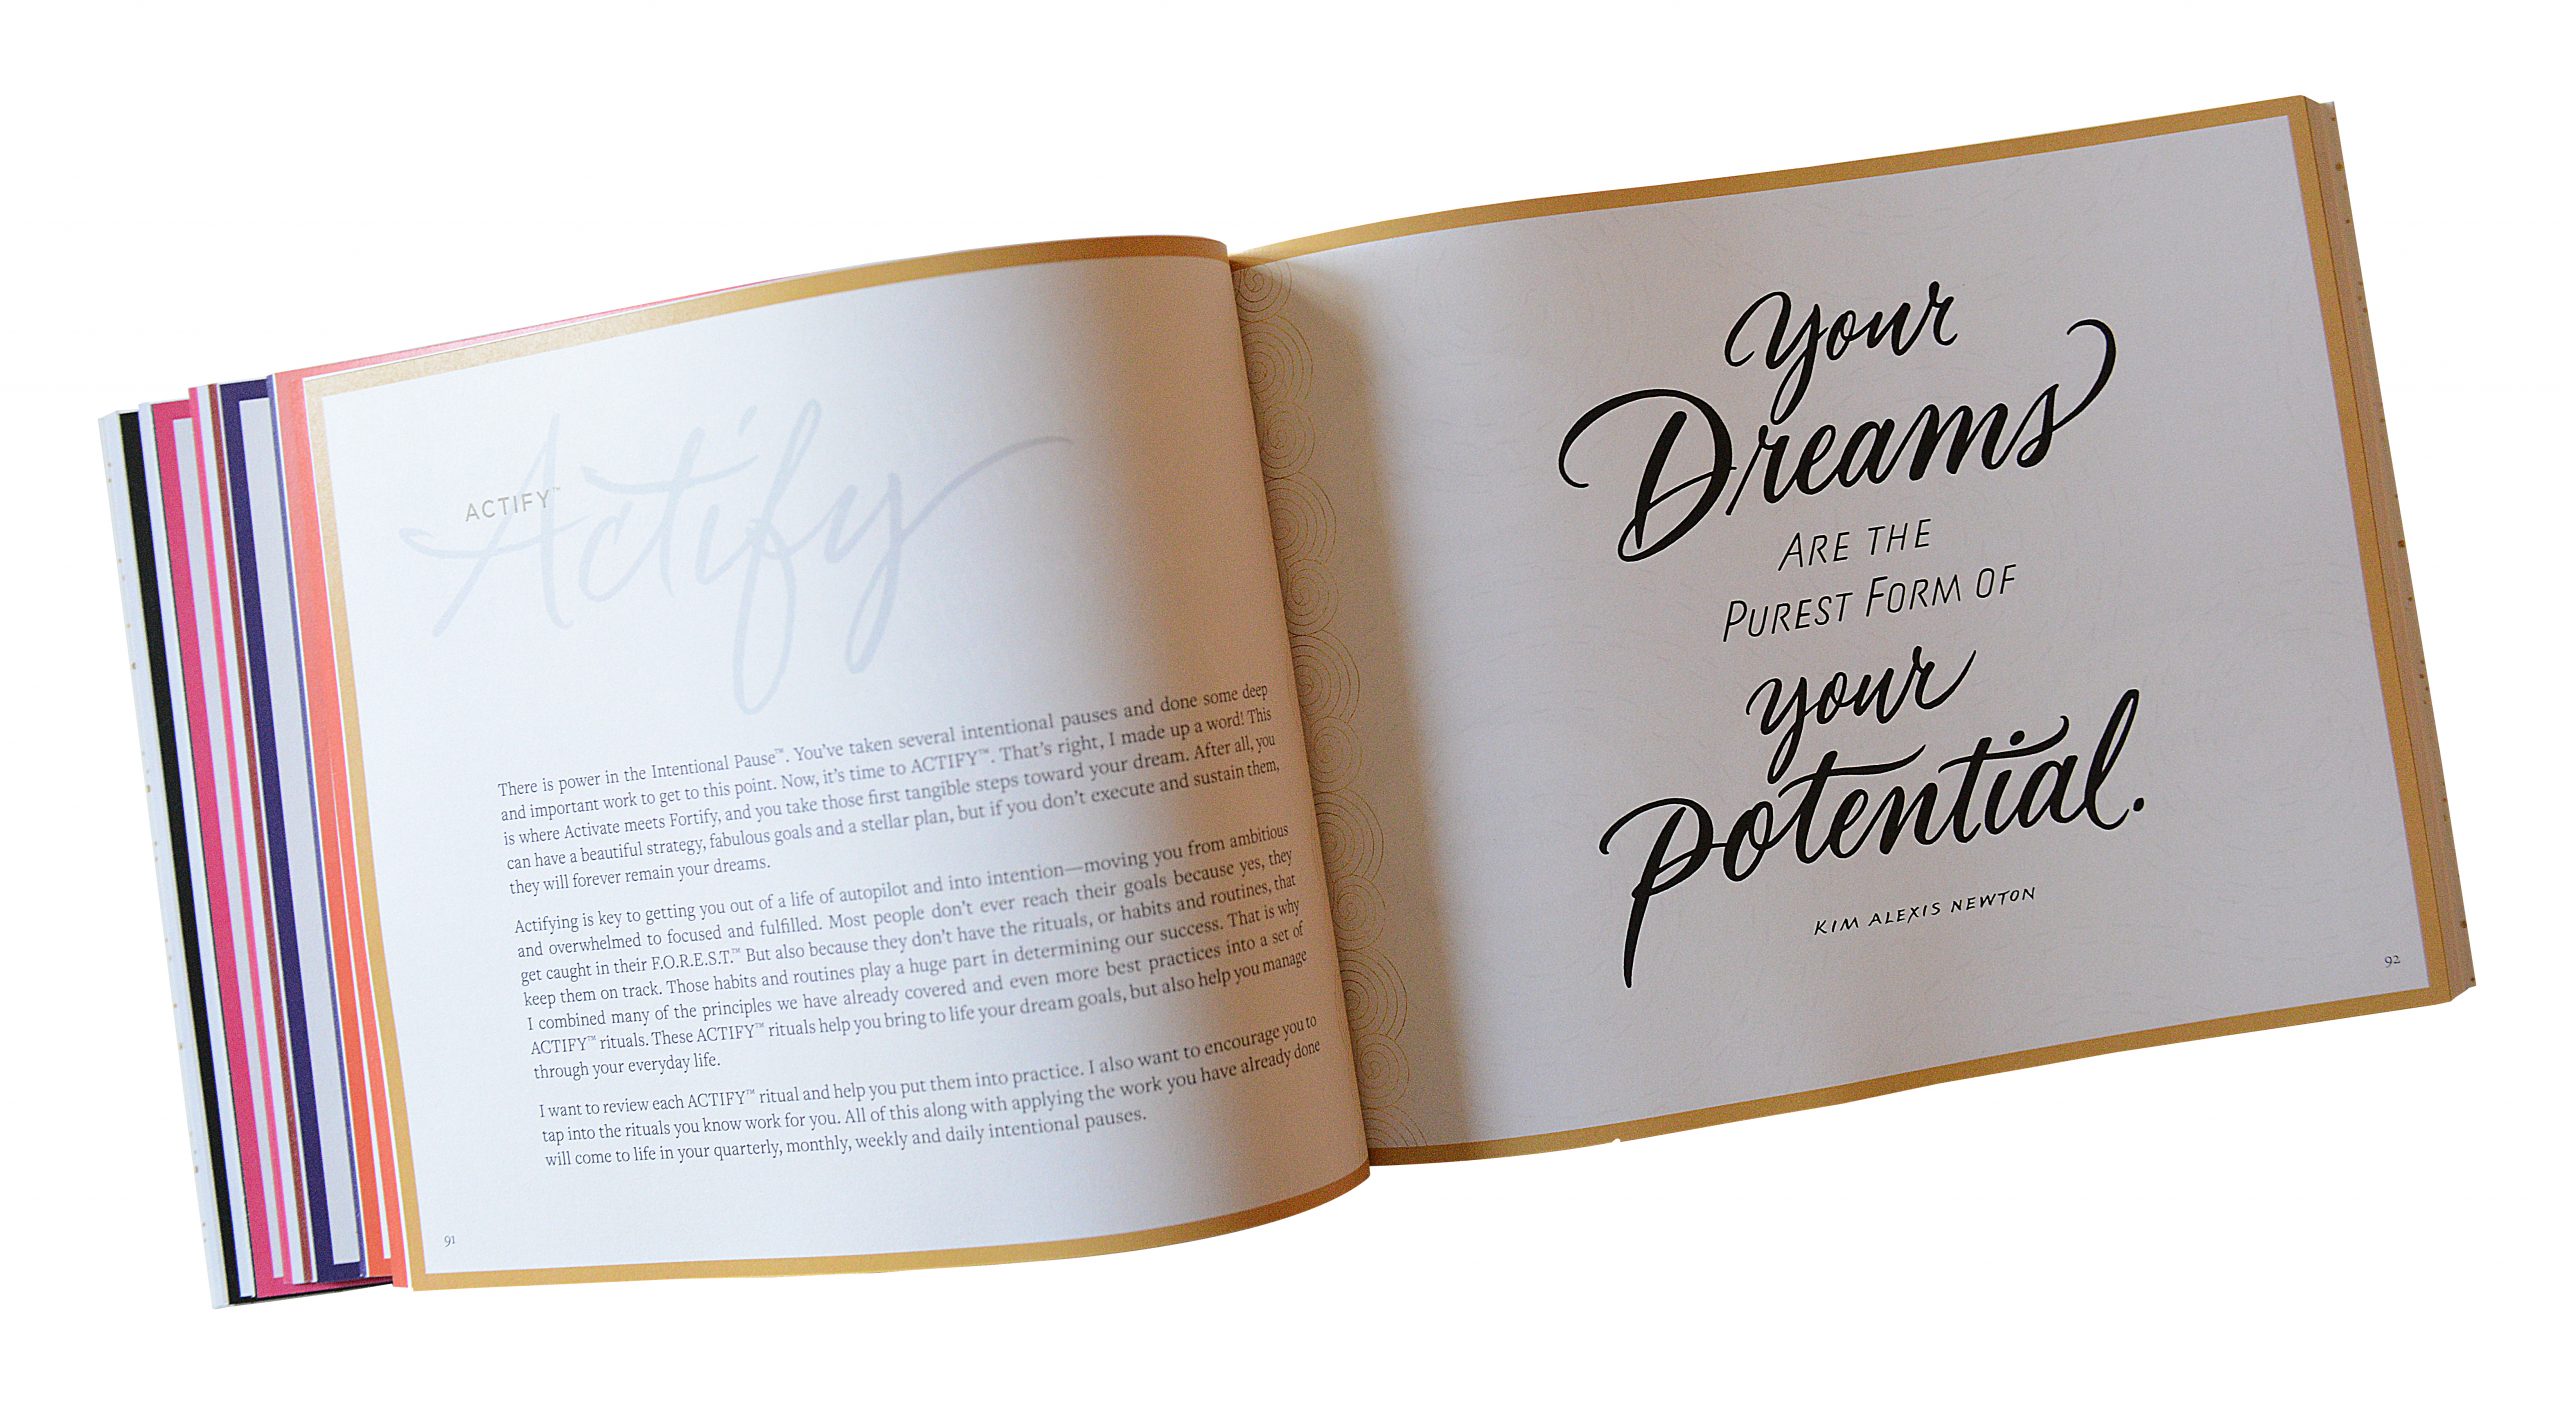 Actify
ACTIFY™
There is power in the Intentional Pause™. You've taken several intentional pauses and done some deep
and important work to get to this point. Now, it's time to ACTIFY™. That's right, I made up a word! This
is where Activate meets Fortify, and you take those first tangible steps toward your dream. After all, you
can have a beautiful strategy, fabulous goals and a stellar plan, but if you don't execute and sustain them,
they will forever remain your dreams.
Actifying is key to getting you out of a life of autopilot and into intention—moving you from ambitious
and overwhelmed to focused and fulfilled. Most people don't ever reach their goals because yes, they
get caught in their F.O.R.E.S.T.™ But also because they don't have the rituals, or habits and routines, that
keep them on track. Those habits and routines play a huge part in determining our success. That is why
I combined many of the principles we have already covered and even more best practices into a set of
ACTIFY™ rituals. These ACTIFY™ rituals help you bring to life your dream goals, but also help you manage
through your everyday life.
I want to review each ACTIFY™ ritual and help you put them into practice. I also want to encourage you to
tap into the rituals you know work for you. All of this along with applying the work you have already done
will come to life in your quarterly, monthly, weekly and daily intentional pauses.
91
Your
Dreams
ARE THE
PUREST FORM OF
your
potential.
KIM ALEXIS NEWTON
92